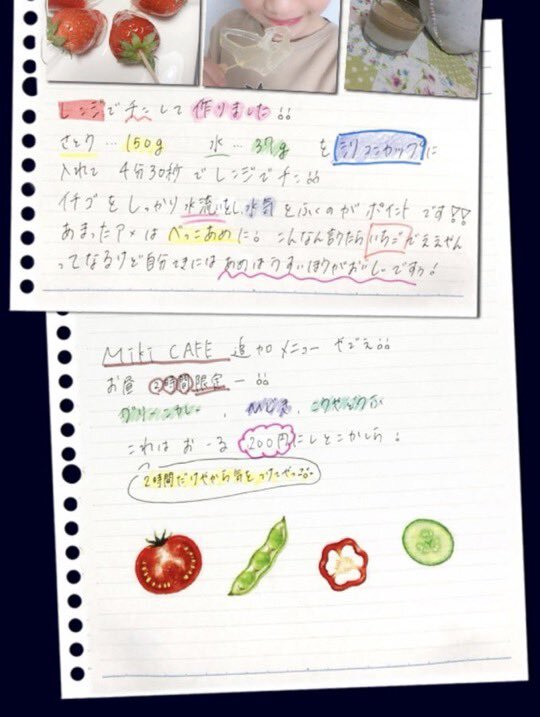 レンジでチンして作りました!!
さとう…150g 水…37g を シリコンカップに
入れて 4分30秒 でレンジでチン!!
イチゴをしっかり水洗いをし、水気をふくのがポイントです!!
あまったアメは べっこあめに。こんなん言うたら いちごでええやん
ってなるけど自分てきには あめはうすいほうがおいしーですっ!
Miki CAFE 追加メニュー やでえ!!
お昼 2時間限定ー!!
グリーンカレー 、
これは おーる 200円にしとこかしら!
2時間だけやから気をつけてやっ!!